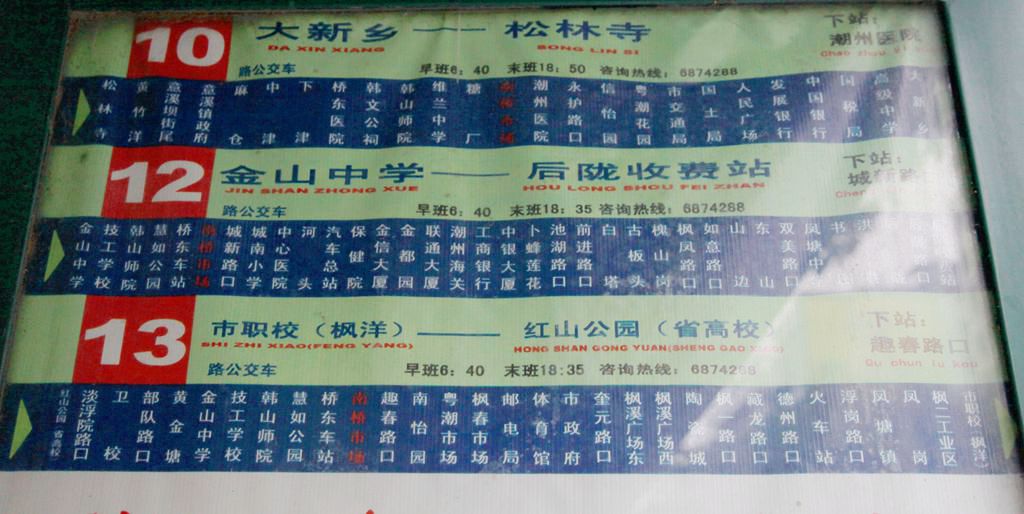 10 大新乡——松林寺 下站：
DA XIN XIANG SONG LIN SI 潮州医院
路公交车 早班6：40 末班18：50 咨询热线：6874288
松林寺 黄竹洋 意溪坝街尾 意溪镇政府 麻仓 中津 下津 桥东医院 韩文公祠 韩山师院 维兰中学 糖厂 南桥市场 潮州医院 永护路口 信怡园 粤潮花园 市交通局 国土局 人民广场 发展银行 中国银行 国税局 高级中学 大新乡
12 金山中学——后陇收费站 下站：
JIN SHAN ZHONG XUE HOU LONG SHOU FEI ZHAN 城新路
路公交车 早班6：40 末班18：35 咨询热线：6874288
金山中学 技工学校 韩山师院 慧如公园 桥东车站 南桥市场 城新路口 城南小学 中心医院 河头 汽车总站 保健院 金信大厦 金都大厦 联通大厦 潮州海关 工商银行 中银大厦 卜蜂莲花 池湖路口 前进路口 白塔 古板头 槐山岗 枫凤路口 如意路口 山边 东山 双美路口 凤塘中
13 市职校（枫洋）——红山公园（省高校） 下站：
SHI ZHI XIAO(FENG YANG) HONG SHAN GONG YUAN(SHENG GAO XIAO) 趣春路口
Qu chun lu kou
路公交车 早班6：40 末班18:35 咨询热线：6874288
红山公园（省高校） 淡浮院路口 卫校 部队路口 黄金塘 金山中学 技工学校 韩山师院 慧如公园 桥东车站 南桥市场 趣春路口 南怡园 粤潮市场 枫春市场 邮电局 体育馆 市政府 奎元路口 枫溪广场东 枫溪广场西 陶瓷城 枫一路口 藏龙路口 德州路口 火车站 浮岗路口 凤塘镇 凤岗 枫二工业区 市职校（枫洋）